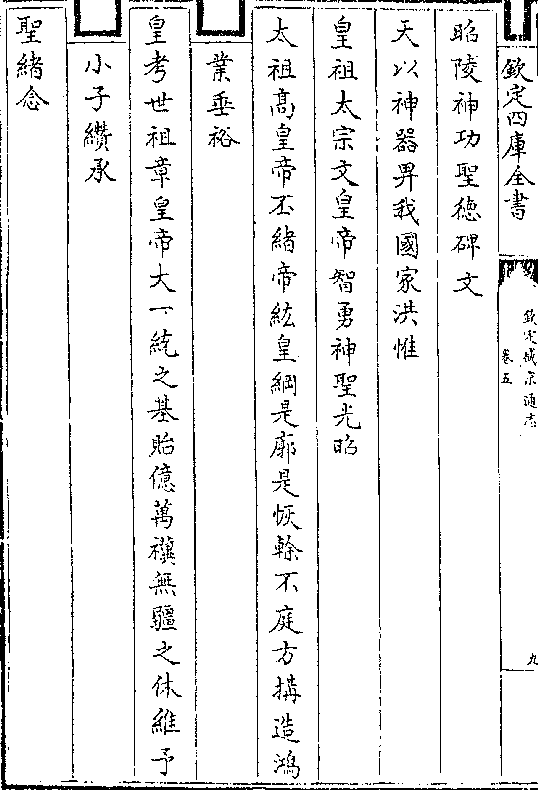 欽定四庫全書
欽定盛京通志
卷五
九
昭陵神功聖德碑文
天以神器畀我國家洪惟
皇祖太宗文皇帝智勇神聖光昭
太祖高皇帝丕緒帝紘皇綱是廓是恢榦不庭方搆造鴻
業垂裕
皇考世祖章皇帝大一統之基貽億萬禩無疆之休維予
小子纘承
聖緒念